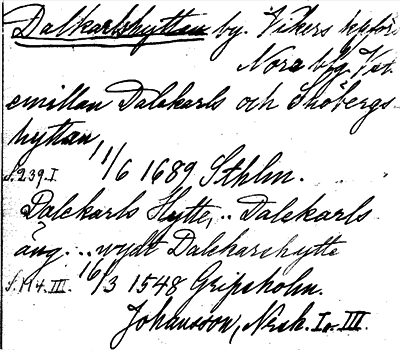 Dalkarlshyttan by. Vikers kpför.
Nora bfg. Vat.
emillan Dalekarls och Sköbergs-
hyttan,
11/6 1689 Sthlm.
s. 239. I
Dalekarls Hytte, .. Dalekarls
äng. .. wydt Dalekarshytte
s. 114. III. 16/3 1548 Gripsholm.
Johansson, Nbsk. I-III.